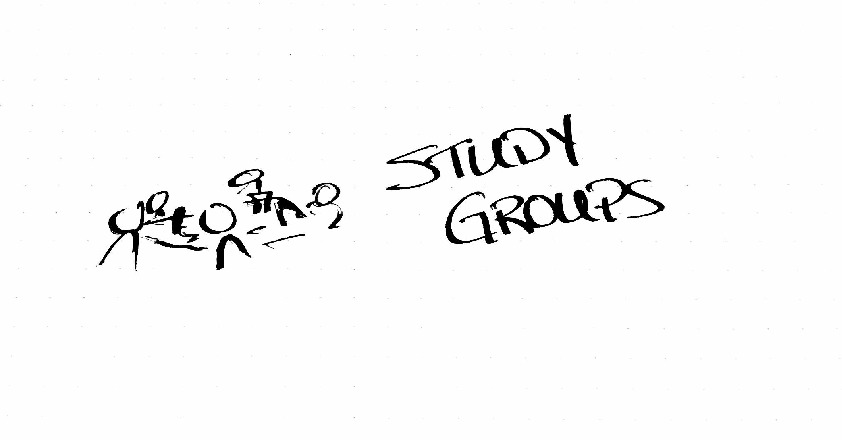 STUDY
GROUPS